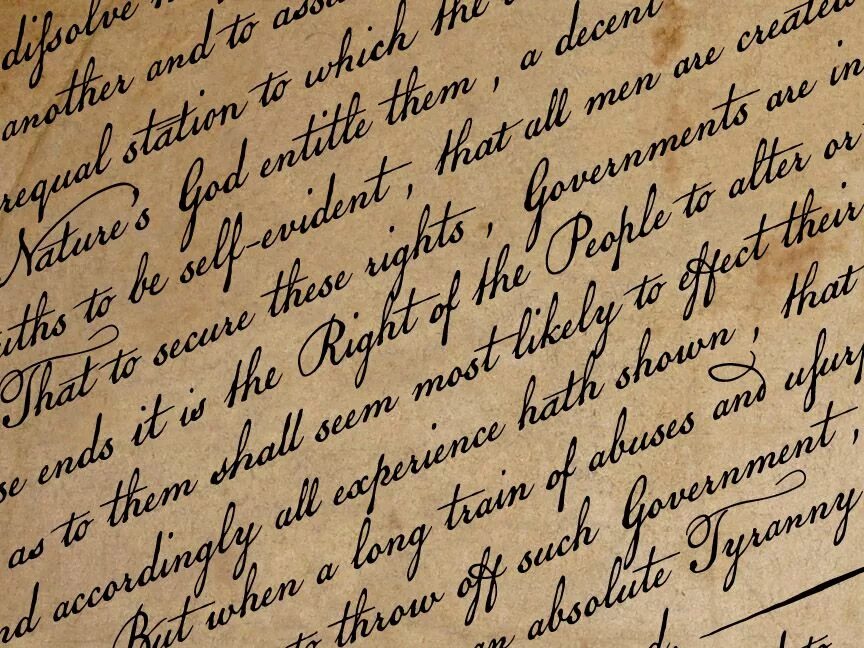 difsolve
another and to assu
requal station to which the
Nature's God entitle them , a decent
uths to be self-evident , that all men are created
That to secure these rights , Governments are in
se ends it is the Right of the People to alter or
as to them shall seem most likely to effect their
nd accordingly all experience hath shown , that
But when a long train of abuses and usurp
to throw off such Government ,
an absolute Tyranny
d.
to